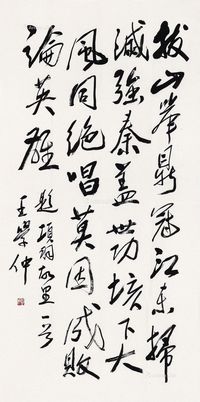 拔山举鼎冠江东扫
灭强秦盖世功垓下大
风同绝唱莫因成败
论英雄
题项羽故里一首
王学仲